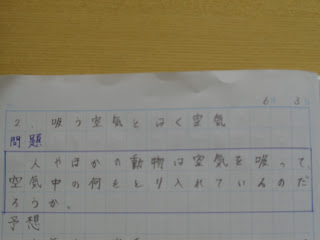 6 8
2. 吸う空気とはく空気
問題
人やほかの動物は空気を吸って、
空気中の何をとり入れているのだ
ろうか。
予想